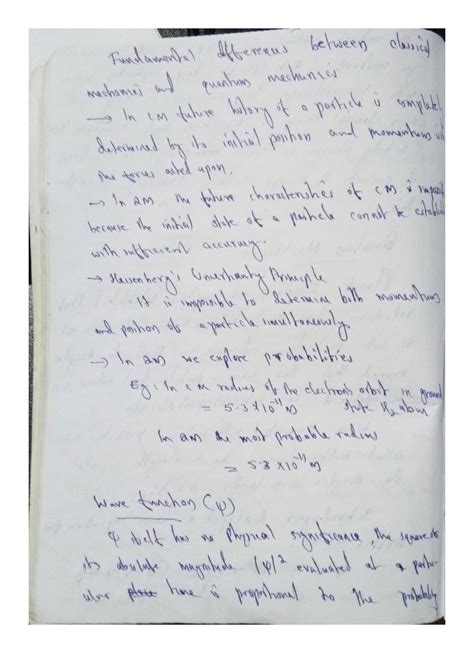 Fundamental differences between classical
mechanics and quantum mechanics
→ In CM future history of a particle is complete
determined by its initial position and momentum
the forces acted upon.
→ In QM the future characteristics of CM is
because the initial state of a particle cannot be
with sufficient accuracy.
→ Heisenberg's Uncertainty Principle
It is impossible to determine both momentum
and position of a particle simultaneously.
→ In QM we explore probabilities
Eg: In CM radius of the electrons orbit in ground
= 5.3 × 10⁻¹¹ m state H₂ atom
In QM the most probable radius
= 5.3 × 10⁻¹¹ m
Wave function (ψ)
ψ itself has no Physical significance, the square of
its absolute magnitude |ψ|² evaluated at a partic-
ular time is proportional to the probability